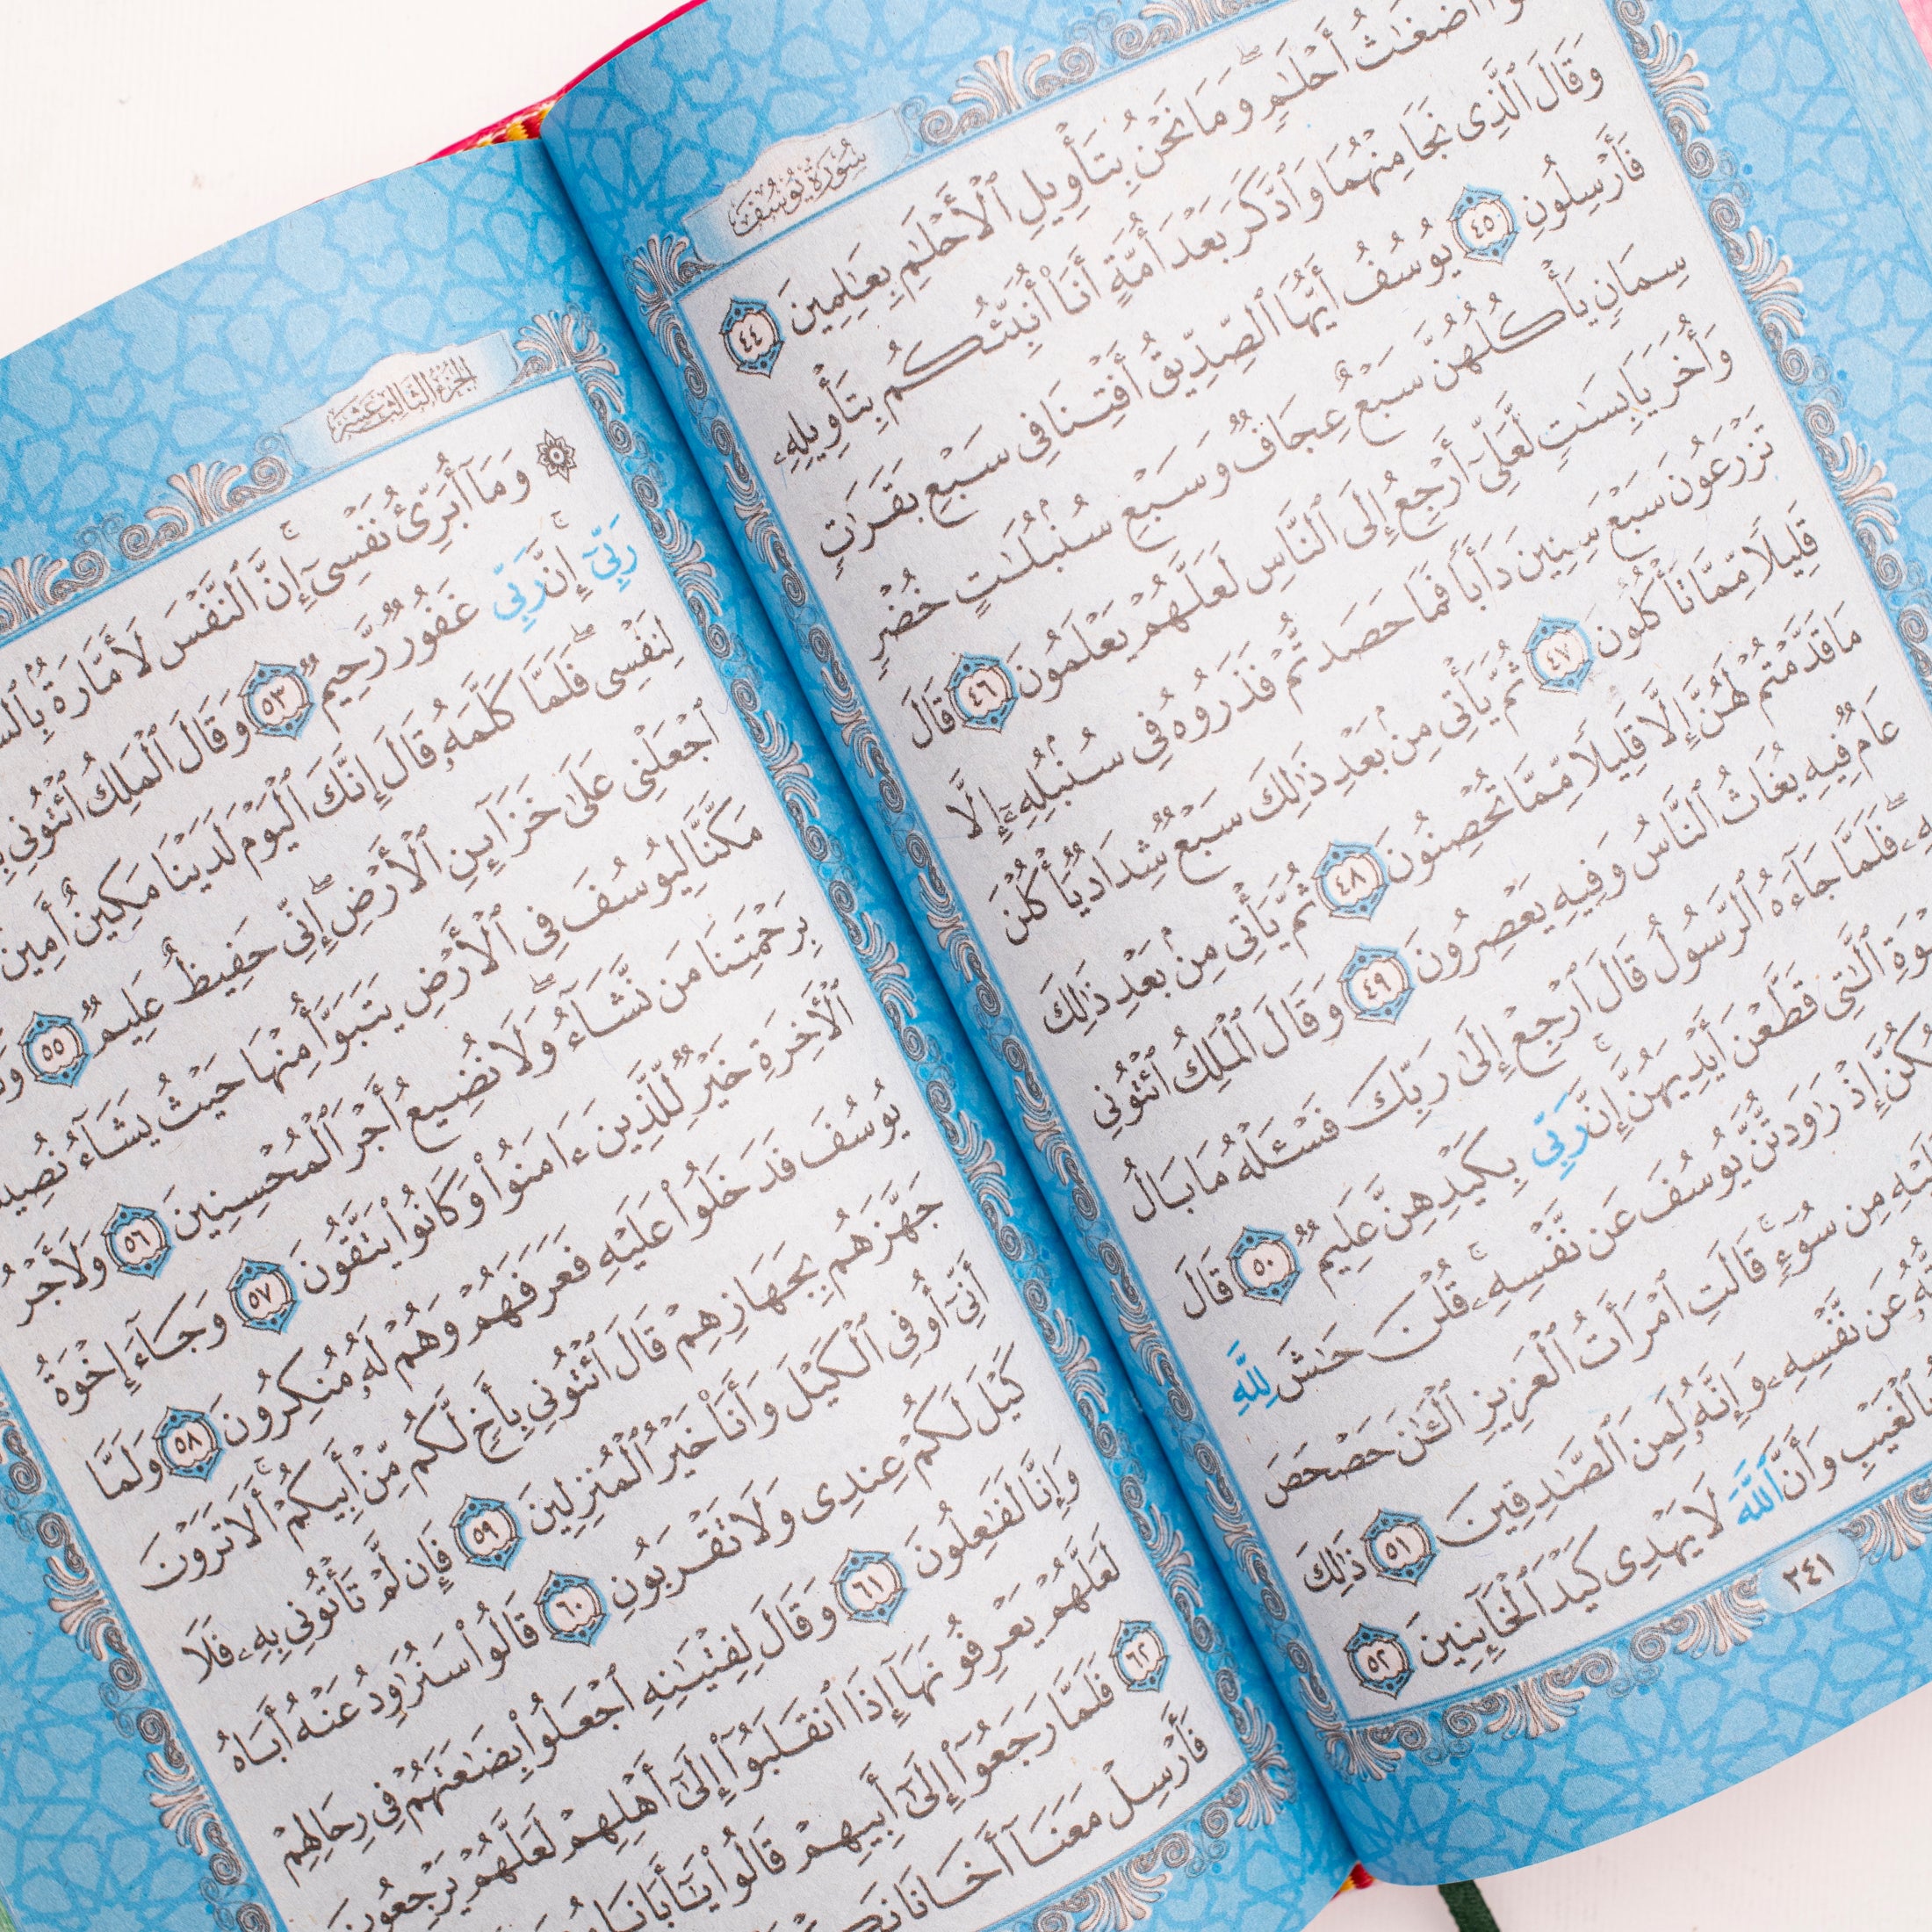 سُورَةُ يُوسُفَ
أَضْغَٰثُ أَحْلَٰمٍۖ وَمَا نَحْنُ بِتَأْوِيلِ ٱلْأَحْلَٰمِ بِعَٰلِمِينَ ٤٤
وَقَالَ ٱلَّذِى نَجَا مِنْهُمَا وَٱدَّكَرَ بَعْدَ أُمَّةٍ أَنَا۠ أُنَبِّئُكُم بِتَأْوِيلِهِۦ
فَأَرْسِلُونِ ٤٥ يُوسُفُ أَيُّهَا ٱلصِّدِّيقُ أَفْتِنَا فِى سَبْعِ بَقَرَٰتٍ
سِمَانٍ يَأْكُلُهُنَّ سَبْعٌ عِجَافٌ وَسَبْعِ سُنۢبُلَٰتٍ خُضْرٍ
وَأُخَرَ يَابِسَٰتٍ لَّعَلِّىٓ أَرْجِعُ إِلَى ٱلنَّاسِ لَعَلَّهُمْ يَعْلَمُونَ ٤٦ قَالَ
تَزْرَعُونَ سَبْعَ سِنِينَ دَأَبًا فَمَا حَصَدتُّمْ فَذَرُوهُ فِى سُنۢبُلِهِۦٓ إِلَّا
قَلِيلًا مِّمَّا تَأْكُلُونَ ٤٧ ثُمَّ يَأْتِى مِنۢ بَعْدِ ذَٰلِكَ سَبْعٌ شِدَادٌ يَأْكُلْنَ
مَا قَدَّمْتُمْ لَهُنَّ إِلَّا قَلِيلًا مِّمَّا تُحْصِنُونَ ٤٨ ثُمَّ يَأْتِى مِنۢ بَعْدِ ذَٰلِكَ
عَامٌ فِيهِ يُغَاثُ ٱلنَّاسُ وَفِيهِ يَعْصِرُونَ ٤٩ وَقَالَ ٱلْمَلِكُ ٱئْتُونِى
فَلَمَّا جَآءَهُ ٱلرَّسُولُ قَالَ ٱرْجِعْ إِلَىٰ رَبِّكَ فَسْـَٔلْهُ مَا بَالُ
ٱلَّٰتِى قَطَّعْنَ أَيْدِيَهُنَّۚ إِنَّ رَبِّى بِكَيْدِهِنَّ عَلِيمٌ ٥٠ قَالَ
إِذْ رَٰوَدتُّنَّ يُوسُفَ عَن نَّفْسِهِۦۚ قُلْنَ حَٰشَ لِلَّهِ
مِن سُوٓءٍۚ قَالَتِ ٱمْرَأَتُ ٱلْعَزِيزِ ٱلْـَٰٔنَ حَصْحَصَ
عَن نَّفْسِهِۦ وَإِنَّهُۥ لَمِنَ ٱلصَّٰدِقِينَ ٥١ ذَٰلِكَ
بِٱلْغَيْبِ وَأَنَّ ٱللَّهَ لَا يَهْدِى كَيْدَ ٱلْخَآئِنِينَ ٥٢
٢٤١
الجزء الثالث عشر
وَمَآ أُبَرِّئُ نَفْسِىٓۚ إِنَّ ٱلنَّفْسَ لَأَمَّارَةٌۢ
رَبِّىٓۚ إِنَّ رَبِّى غَفُورٌ رَّحِيمٌ ٥٣ وَقَالَ ٱلْمَلِكُ ٱئْتُونِى
لِنَفْسِىۖ فَلَمَّا كَلَّمَهُۥ قَالَ إِنَّكَ ٱلْيَوْمَ لَدَيْنَا مَكِينٌ أَمِينٌ
ٱجْعَلْنِى عَلَىٰ خَزَآئِنِ ٱلْأَرْضِۖ إِنِّى حَفِيظٌ عَلِيمٌ ٥٥
مَكَّنَّا لِيُوسُفَ فِى ٱلْأَرْضِ يَتَبَوَّأُ مِنْهَا حَيْثُ يَشَآءُۚ نُصِيبُ
بِرَحْمَتِنَا مَن نَّشَآءُۖ وَلَا نُضِيعُ أَجْرَ ٱلْمُحْسِنِينَ ٥٦ وَلَأَجْرُ
ٱلْـَٔاخِرَةِ خَيْرٌ لِّلَّذِينَ ءَامَنُوا۟ وَكَانُوا۟ يَتَّقُونَ ٥٧ وَجَآءَ إِخْوَةُ
يُوسُفَ فَدَخَلُوا۟ عَلَيْهِ فَعَرَفَهُمْ وَهُمْ لَهُۥ مُنكِرُونَ ٥٨ وَلَمَّا
جَهَّزَهُم بِجَهَازِهِمْ قَالَ ٱئْتُونِى بِأَخٍ لَّكُم مِّنْ أَبِيكُمْۚ أَلَا تَرَوْنَ
أَنِّىٓ أُوفِى ٱلْكَيْلَ وَأَنَا۠ خَيْرُ ٱلْمُنزِلِينَ ٥٩ فَإِن لَّمْ تَأْتُونِى بِهِۦ فَلَا
كَيْلَ لَكُمْ عِندِى وَلَا تَقْرَبُونِ ٦٠ قَالُوا۟ سَنُرَٰوِدُ عَنْهُ أَبَاهُ
وَإِنَّا لَفَٰعِلُونَ ٦١ وَقَالَ لِفِتْيَٰنِهِ ٱجْعَلُوا۟ بِضَٰعَتَهُمْ فِى رِحَالِهِمْ
لَعَلَّهُمْ يَعْرِفُونَهَآ إِذَا ٱنقَلَبُوٓا۟ إِلَىٰٓ أَهْلِهِمْ لَعَلَّهُمْ يَرْجِعُونَ
٦٢ فَلَمَّا رَجَعُوٓا۟ إِلَىٰٓ أَبِيهِمْ قَالُوا۟ يَٰٓأَبَانَا
فَأَرْسِلْ مَعَنَآ أَخَانَا